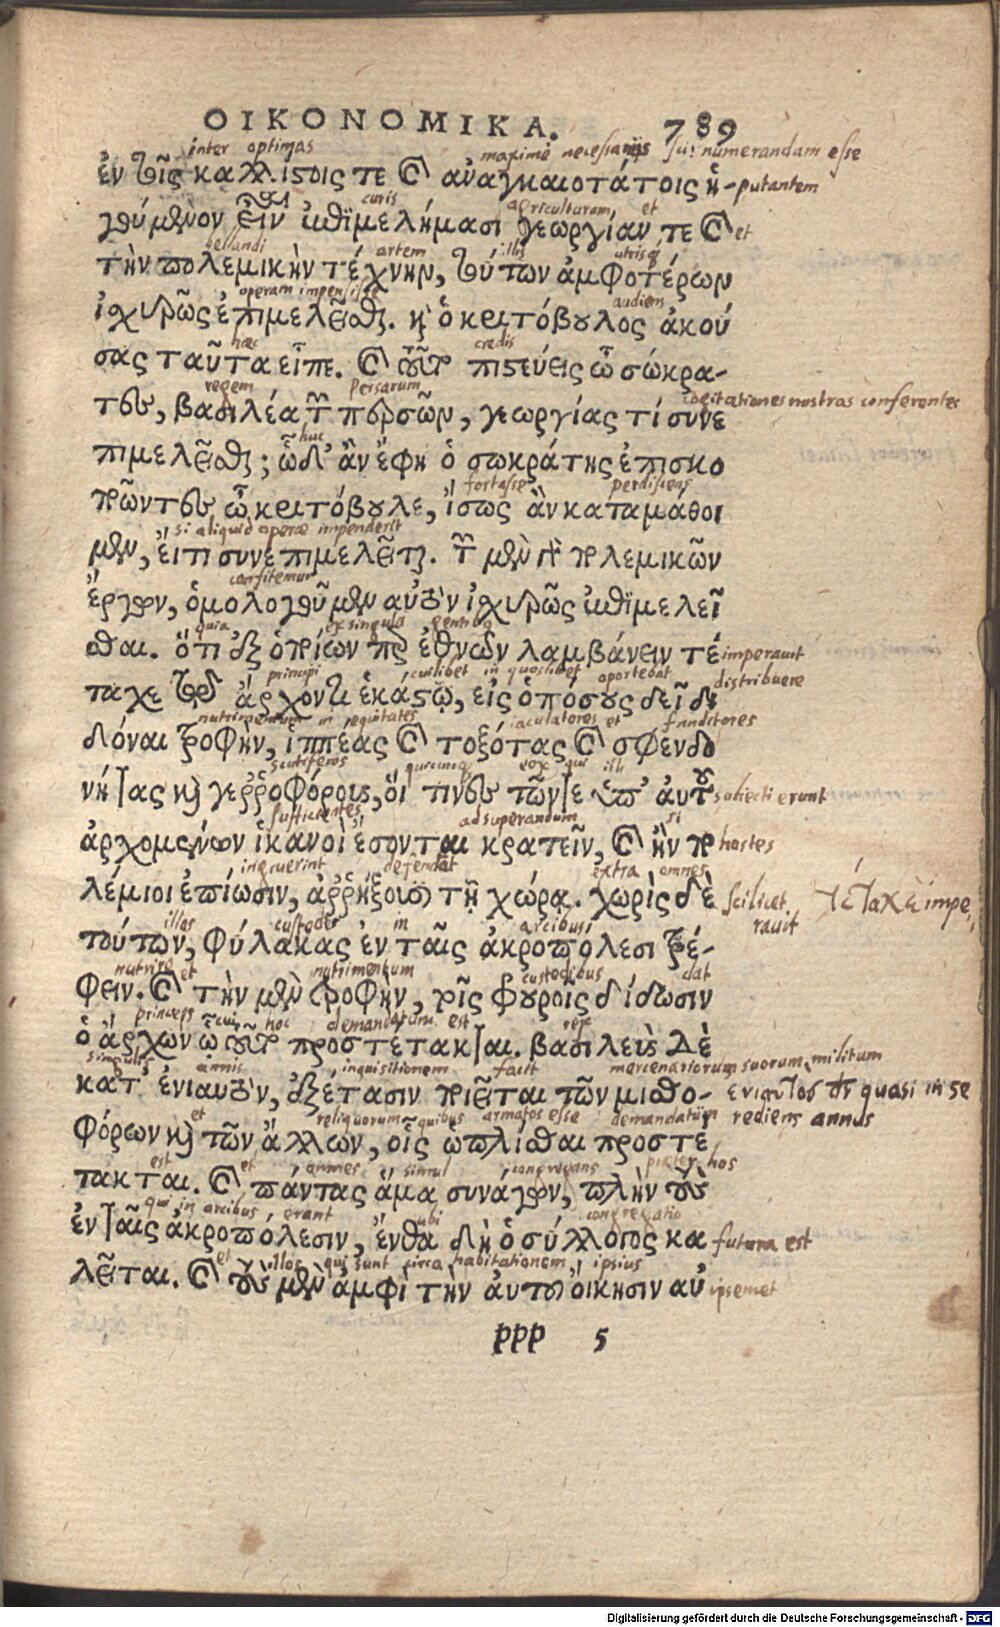 ΟΙΚΟΝΟΜΙΚΑ. 789
inter optimas maximè necessarijs numerandam esse
ἐν τοῖς καλλίστοις τε καὶ ἀναγκαιοτάτοις ἡ- putantem
curis agriculturam et
γούμενον εἶναι ἐπιμελήμασι γεωργίαν τε καὶ et
bellandi artem illis utrisq
τὴν πολεμικὴν τέχνην, τούτων ἀμφοτέρων
operam impensisse audiens
ἰσχυρῶς ἐπιμελεῖσθαι. καὶ ὁ κριτόβουλος ἀκού
hæc credis
σας ταῦτα εἶπε. καὶ τοῦτο πιστεύεις ὦ σώκρα-
regem Persarum cogitationes nostras conferentes
τες, βασιλέα τῶν περσῶν, γεωργίας τί συνε
huc
πιμελεῖσθαι; ὧδ' ἂν ἔφη ὁ σωκράτης ἐπισκο
fortasse perdiscens
ποῦντες ὦ κριτόβουλε, ἴσως ἂν καταμάθοι
si aliquid operæ impenderit
μεν, εἴ τι συνεπιμελεῖται. τῶν μὲν γὰρ πολεμικῶν
confitemur
ἔργων, ὁμολογοῦμεν αὐτὸν ἰσχυρῶς ἐπιμελεῖ
quia ex singulis gentibus
σθαι. ὅτι ἐξ ὁπόσων περ ἐθνῶν λαμβάνειν τέ imperavit
principi cuilibet in quoslibet oportebat distribuere
ταχε τῷ ἄρχοντι ἑκάστῳ, εἰς ὁπόσους δεῖ δι
nutrimentum in equitates iaculatores et funditores
δόναι τροφὴν, ἱππέας καὶ τοξότας καὶ σφενδο
scutiferos quicunq qui illi
νήτας καὶ γερροφόρους, οἵ τινες τῶν τε ὑπ' αὐτοῦ subiecti erunt
sufficientes ad superandum si
ἀρχομένων ἱκανοὶ ἔσονται κρατεῖν, καὶ ἢν πο hostes
ingruerint defendat extra omnes
λέμιοι ἐπίωσιν, ἀρρήξουσι τῇ χώρᾳ. χωρὶς δὲ scilicet τέταχε impe
rauit
illos custodes in arcibus
τούτων, φύλακας ἐν ταῖς ἀκροπόλεσι τρέ-
nutrire et nutrimentum custodibus dat
φειν. καὶ τὴν μὲν τροφὴν, τοῖς φρουροῖς δίδωσιν
princeps cui hoc demandatum est rex
ὁ ἄρχων ᾧ τοῦτο προστέτακται. βασιλεὺς δὲ
singulis annis inquisitionem facit mercenariorum suorum militum
κατ' ἐνιαυτὸν, ἐξέτασιν ποιεῖται τῶν μισθο- ἐνιαυτος quasi in se
et reliquorum quibus armatos esse demandatum rediens annus
φόρων καὶ τῶν ἄλλων, οἷς ὡπλίσθαι προστέ
est et omnes simul congregans præter hos
τακται. καὶ πάντας ἅμα συνάγων, πλὴν τοὺς
qui in arcibus erant ubi congregatio
ἐν ταῖς ἀκροπόλεσιν, ἔνθα δὴ ὁ σύλλογος κα futura est
et illos qui sunt circa habitationem ipsius
λεῖται. καὶ τοὺς μὲν ἀμφὶ τὴν ἀυτοῦ οἴκησιν αὐ ipsemet
PPP 5
Digitalisierung gefördert durch die Deutsche Forschungsgemeinschaft - DFG